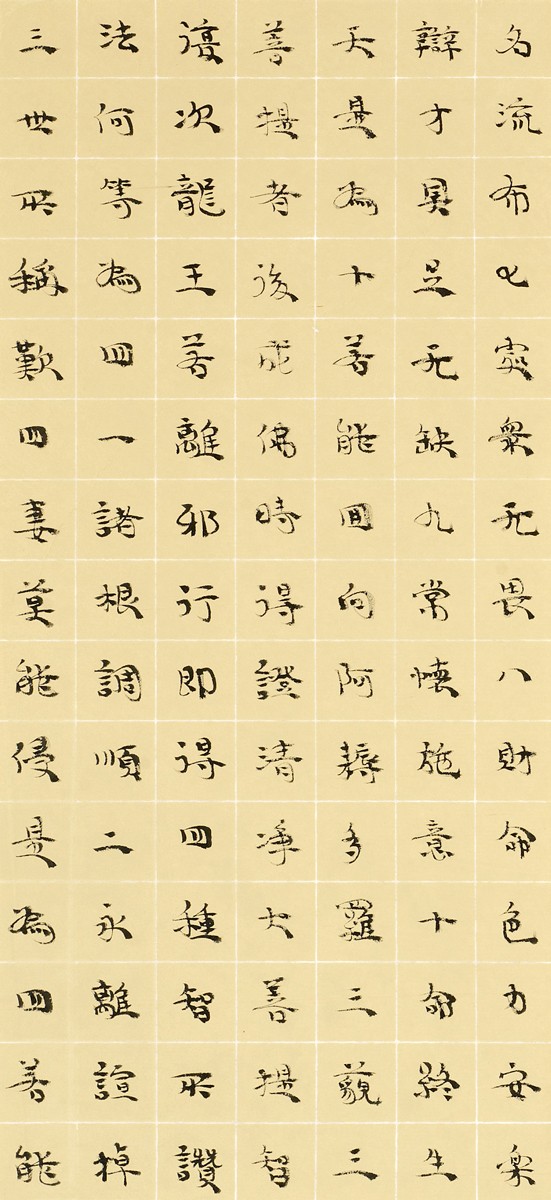 名流布七處衆无畏八財命色力安楽
辯才具足无缺九常懷施意十命終生
天是為十若能回向阿耨多羅三藐三
菩提者後成佛時得證清淨大菩提智
復次龍王若離邪行即得四種智所讚
法何等為四一諸根調順二永離諠掉
三世所稱歎四妻莫能侵是為四若能